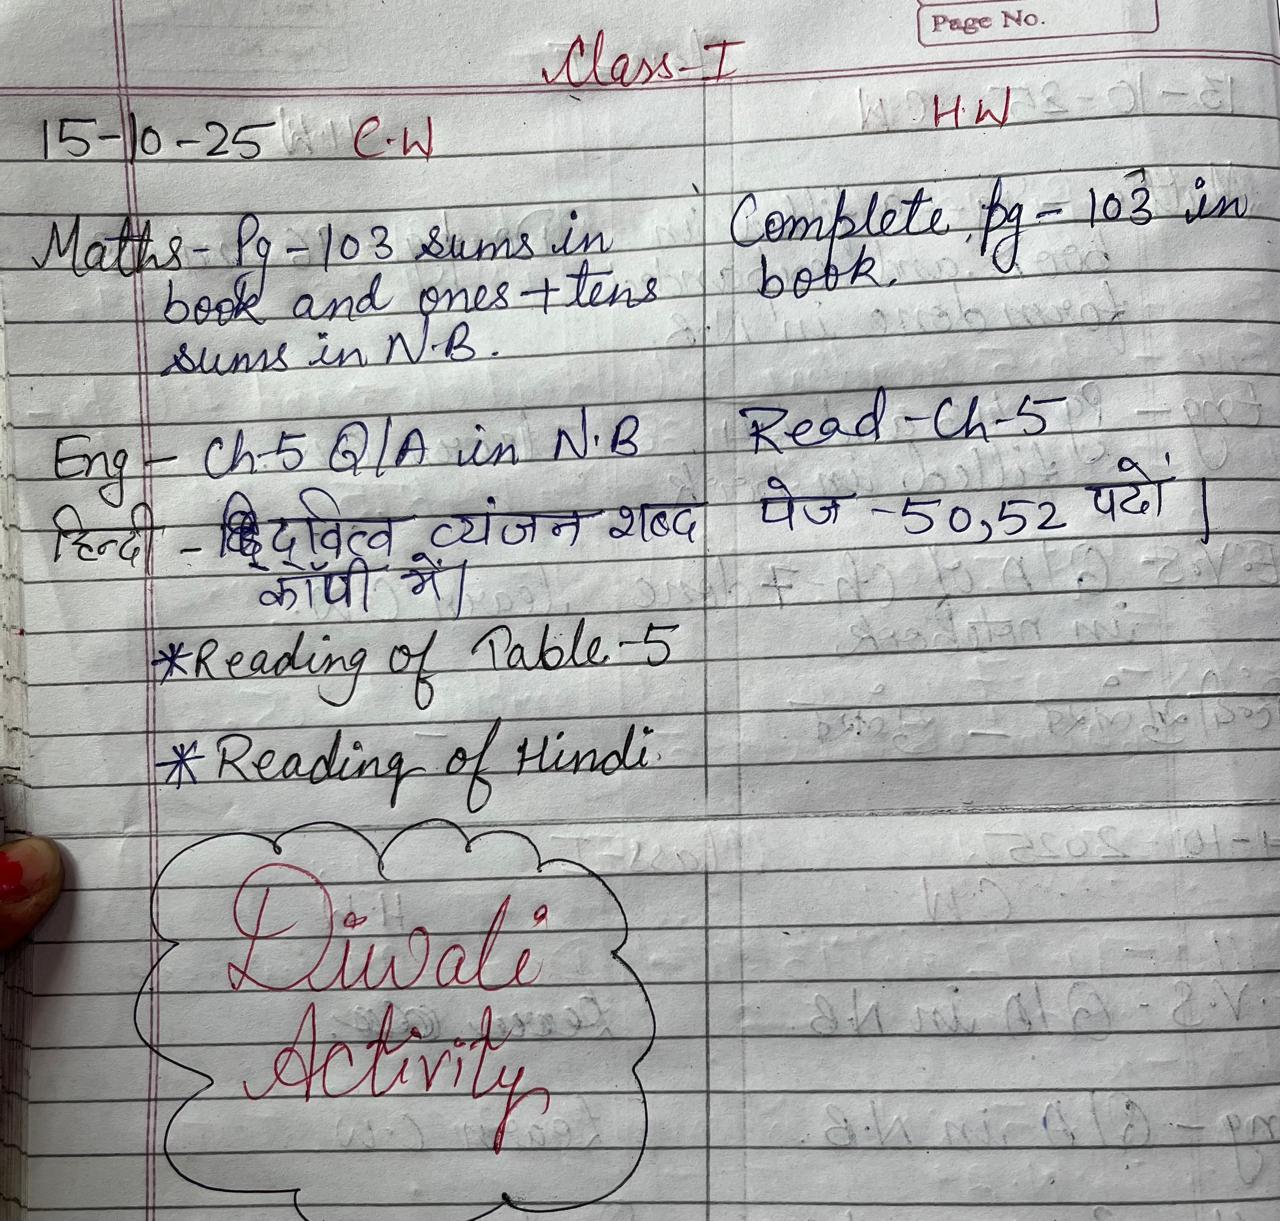 Page No.
Class-I
15-10-25 C.W H.W
Maths- Pg-103 sums in
book and ones+tens
sums in N.B.
Complete pg-103 in
book.
Eng - Ch-5 Q/A in N.B
Read-Ch-5
हिन्दी - द्वित्व व्यंजन शब्द
कॉपी में।
पेज -50,52 पढो।
*Reading of Table-5
*Reading of Hindi.
Diwali
Activity